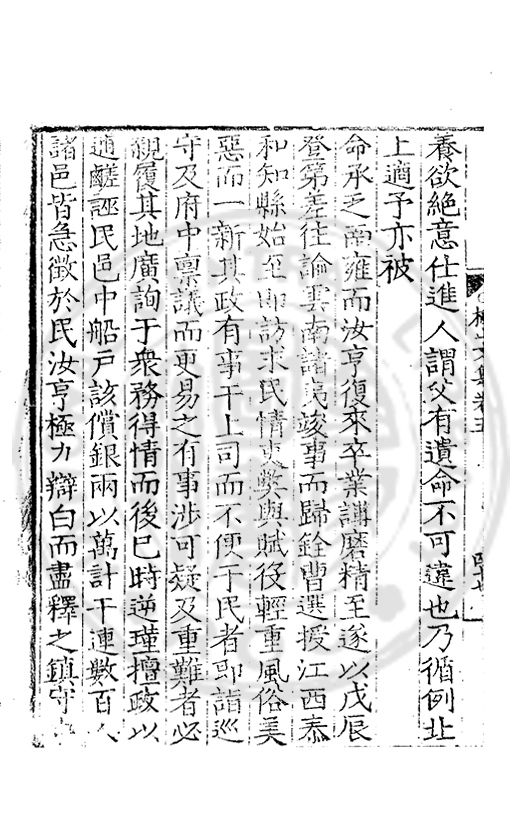 養欲絶意仕進人謂父有遺命不可違也乃循例北
上適予亦被
命承乏南雍而汝亨復來卒業講磨精至遂以戊辰
登第差往論雲南諸夷竣事而歸銓曹選授江西泰
和知縣始至即訪求民情吏弊與賦役輕重風俗美
惡而一新其政有事干上司而不便于民者即詣巡
守及府中稟議而更易之有事涉可疑及重難者必
親履其地廣詢于衆務得情而後已時逆瑾擅政以
逋鹺誣民邑中船戸該償銀兩以萬計干連數百人
諸邑皆急徵於民汝亨極力辯白而盡釋之鎮守
文集卷五